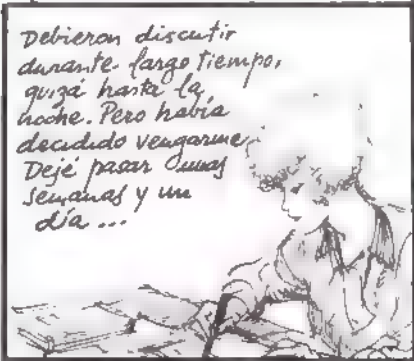 Debieron discutir
durante largo tiempo,
quizá hasta la
noche. Pero había
decidido vengarme
Dejé pasar unas
semanas y un
día ...